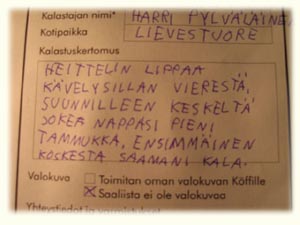 Kalastajan nimi* HARRI PYLVÄLÄINE
Kotipaikka LIEVESTUORE
Kalastuskertomus
HEITTELIN LIPPAA
KÄVELYSILLAN VIERESTÄ,
SUUNNILLEEN KESKELTÄ
JOKEA NAPPASI PIENI
TAMMUKKA, ENSIMMÄINEN
KOSKESTA SAAMANI KALA.
Valokuva Toimitan oman valokuvan Köffille
Saaliista ei ole valokuvaa
Yhteystiedot ja